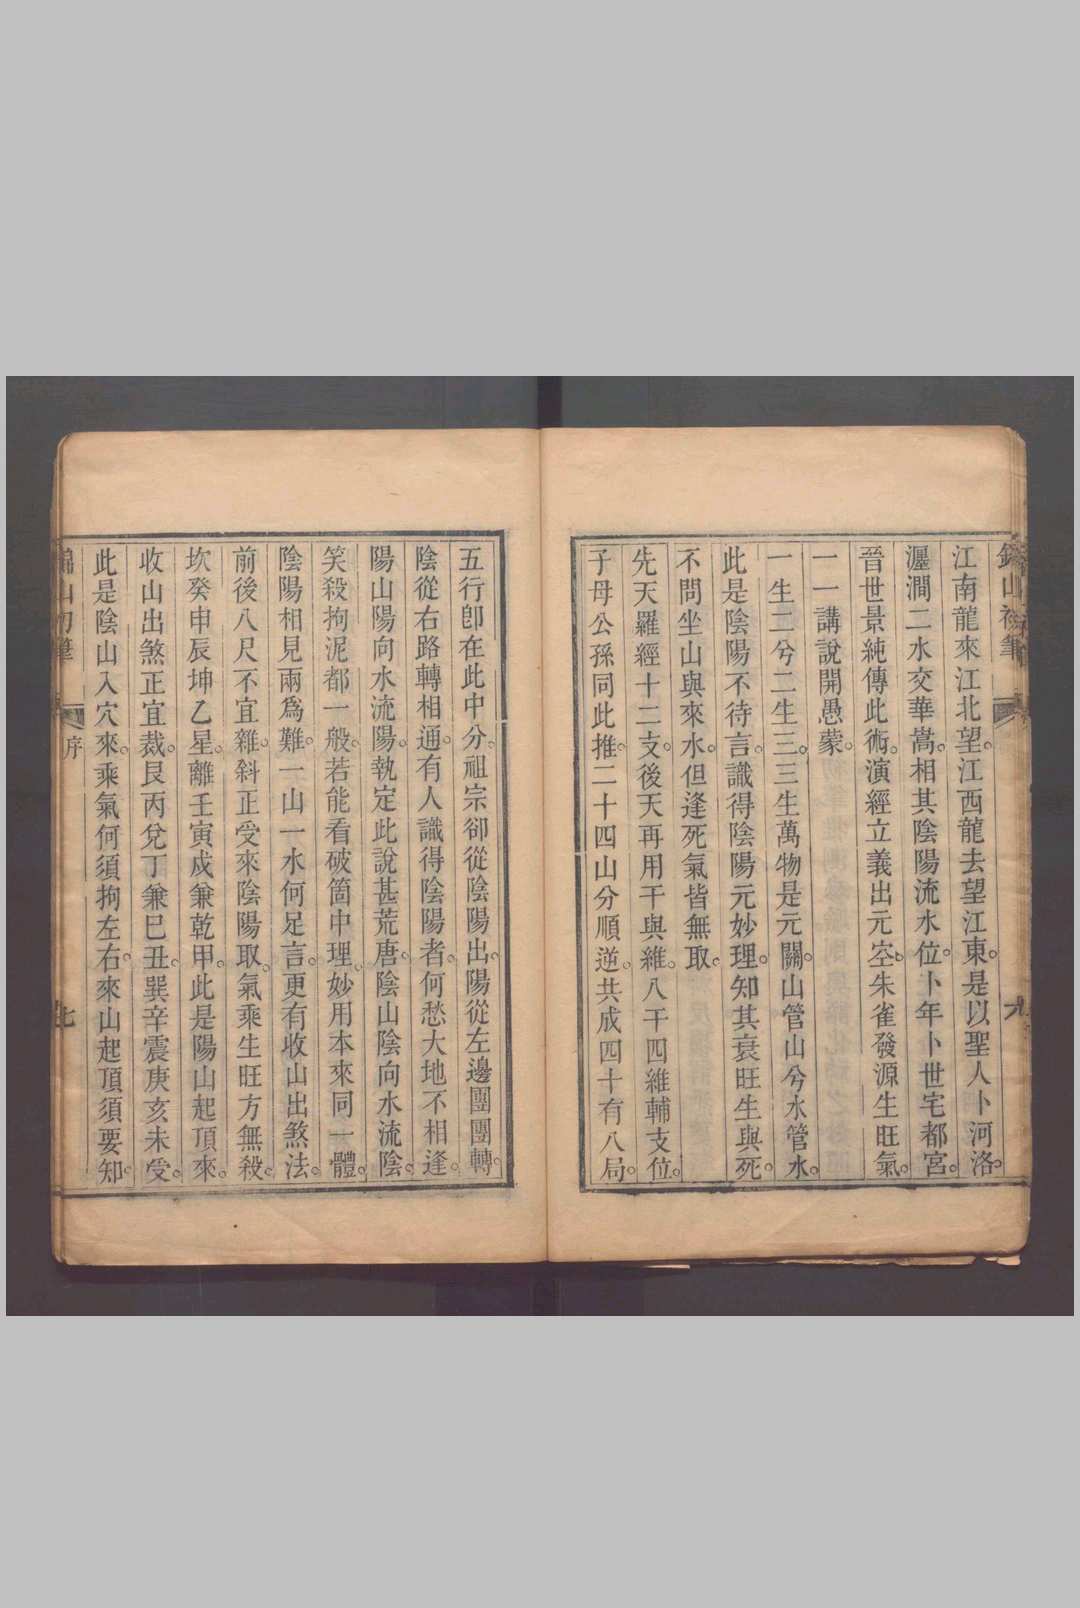 江南龍來江北望。江西龍去望江東。是以聖人卜河洛。
瀍澗二水交華嵩。相其陰陽流水位。卜年卜世宅都宮。
晉世景純傳此術。演經立義出元空。朱雀發源生旺氣。
一一講說開愚蒙。
一生二兮二生三。三生萬物是元關。山管山兮水管水。
此是陰陽不待言。識得陰陽元妙理。知其衰旺生與死。
不問坐山與來水。但逢死氣皆無取。
先天羅經十二支。後天再用干與維。八干四維輔支位。
子母公孫同此推。二十四山分順逆。共成四十有八局。
五行卽在此中分。祖宗卻從陰陽出。陽從左邊團團轉。
陰從右路轉相通。有人識得陰陽者。何愁大地不相逢。
陽山陽向水流陽。執定此說甚荒唐。陰山陰向水流陰。
笑殺拘泥都一般。若能看破箇中理。妙用本來同一體。
陰陽相見兩爲難。一山一水何足言。更有收山出煞法。
前後八尺不宜雜。斜正受來陰陽取。氣乘生旺方無殺。
坎癸申辰坤乙星。離壬寅戌兼乾甲。此是陽山起頂來。
收山出煞正宜裁。艮丙兌丁兼巳丑。巽辛震庚亥未受。
此是陰山入穴來。乘氣何須拘左右。來山起頂須要知。
序
七